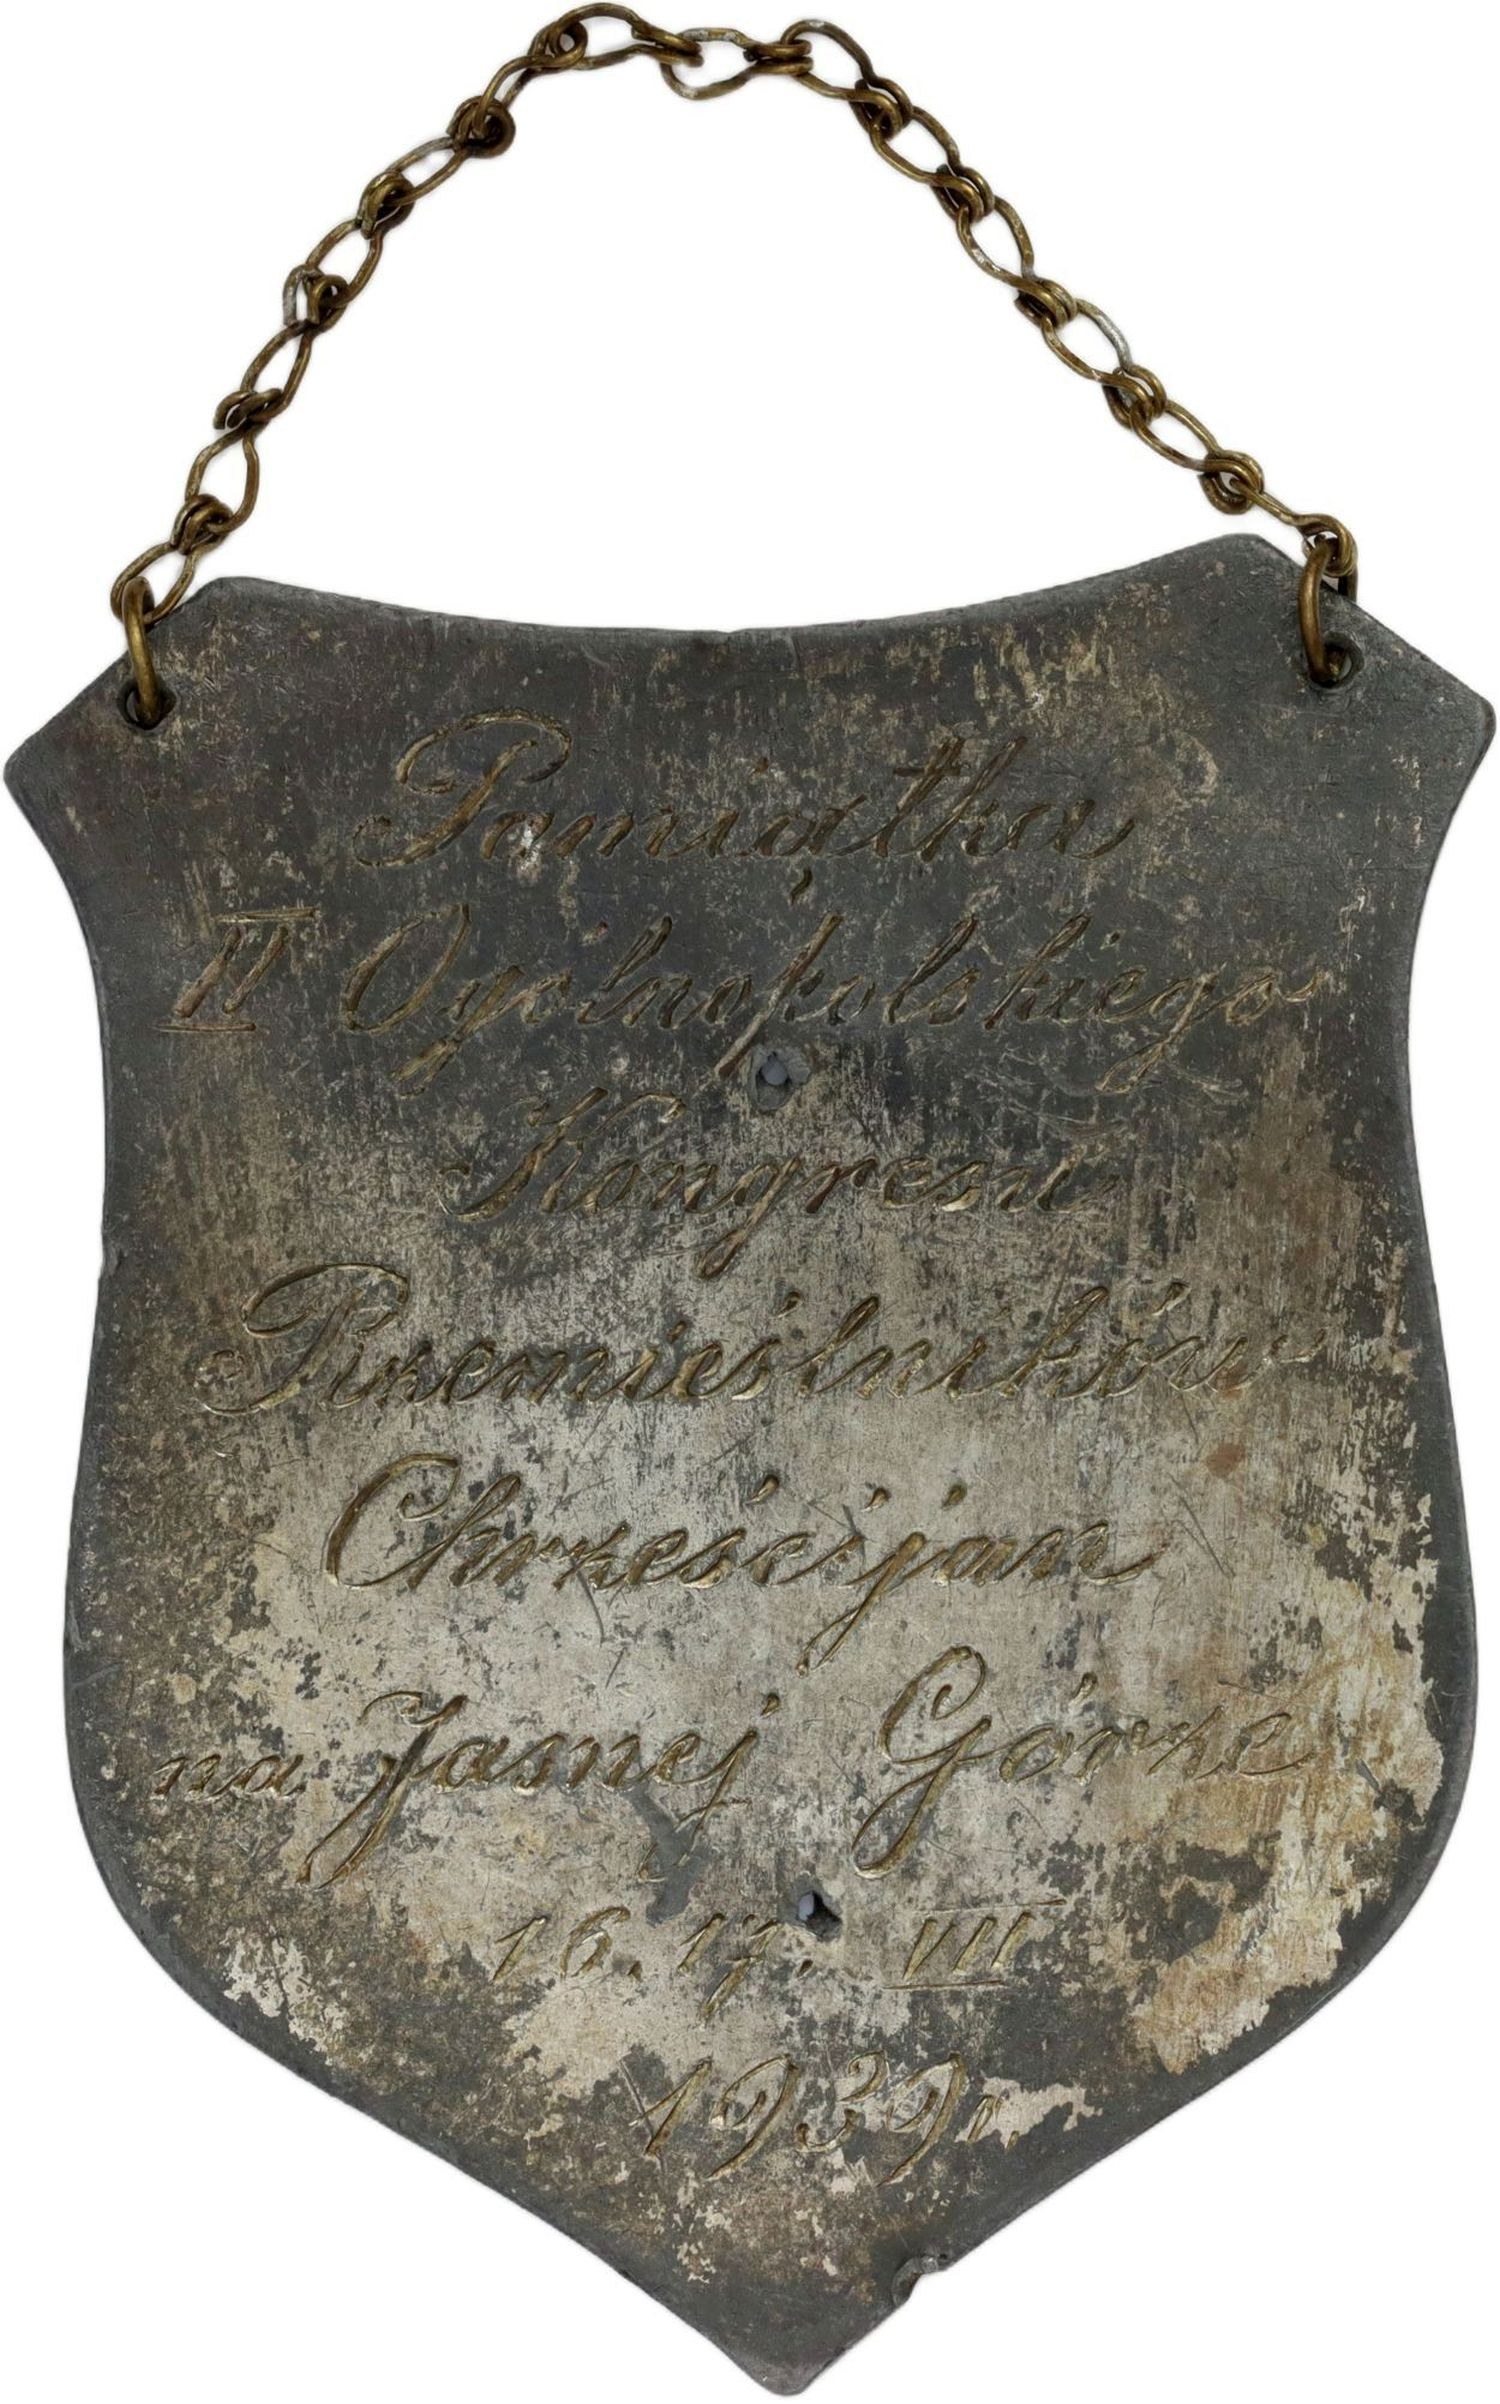 Pamiątka
II Ogólnopolskiego
Kongresu
Rzemieślników
Chrześcijan
na Jasnej Górze
16. 17. VII
1939r.